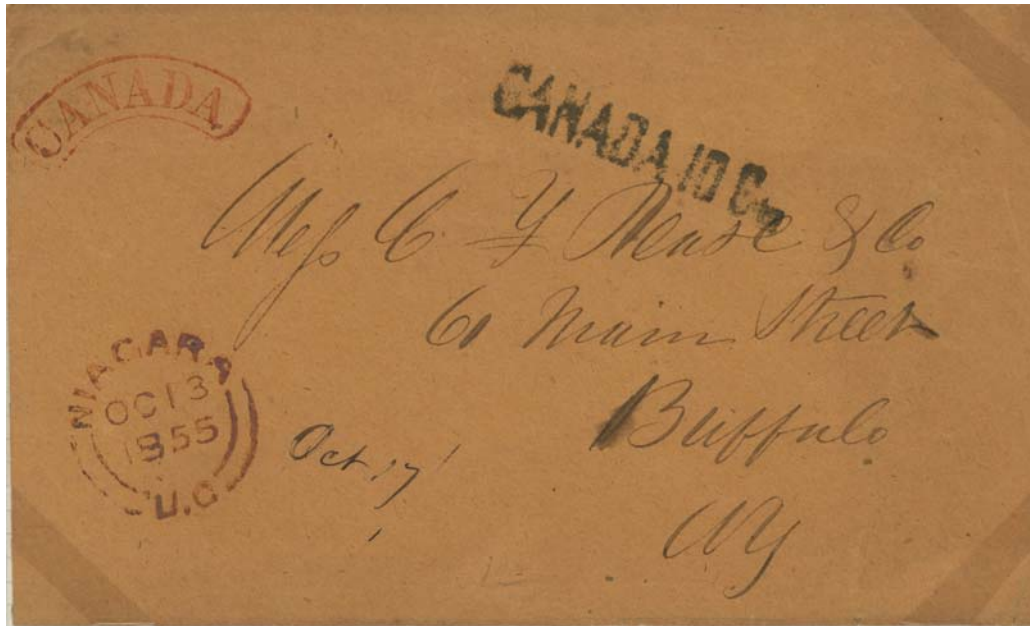 CANADA
CANADA 10 Cts
Mess C Y & Co
Main Street
Buffalo
NY
NIAGARA
OC 13
1855
U.C
Oct 17